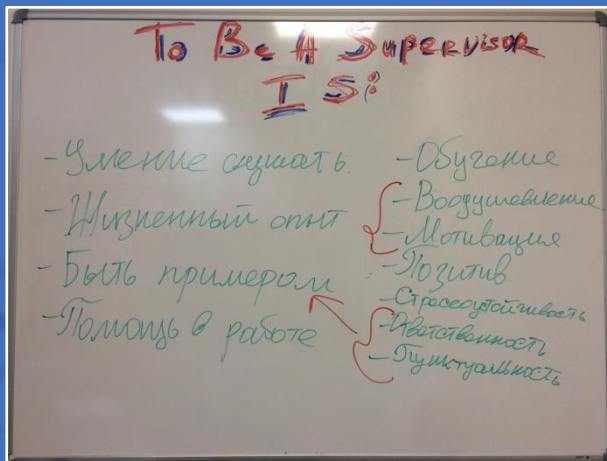 To Be A Supervisor
IS:
- Умение слушать
- Жизненный опыт
- Быть примером
- Помощь в работе
- Обучение
- Воодушевление
- Мотивация
- Позитив
- Стрессоустойчивость
- Ответственность
- Пунктуальность